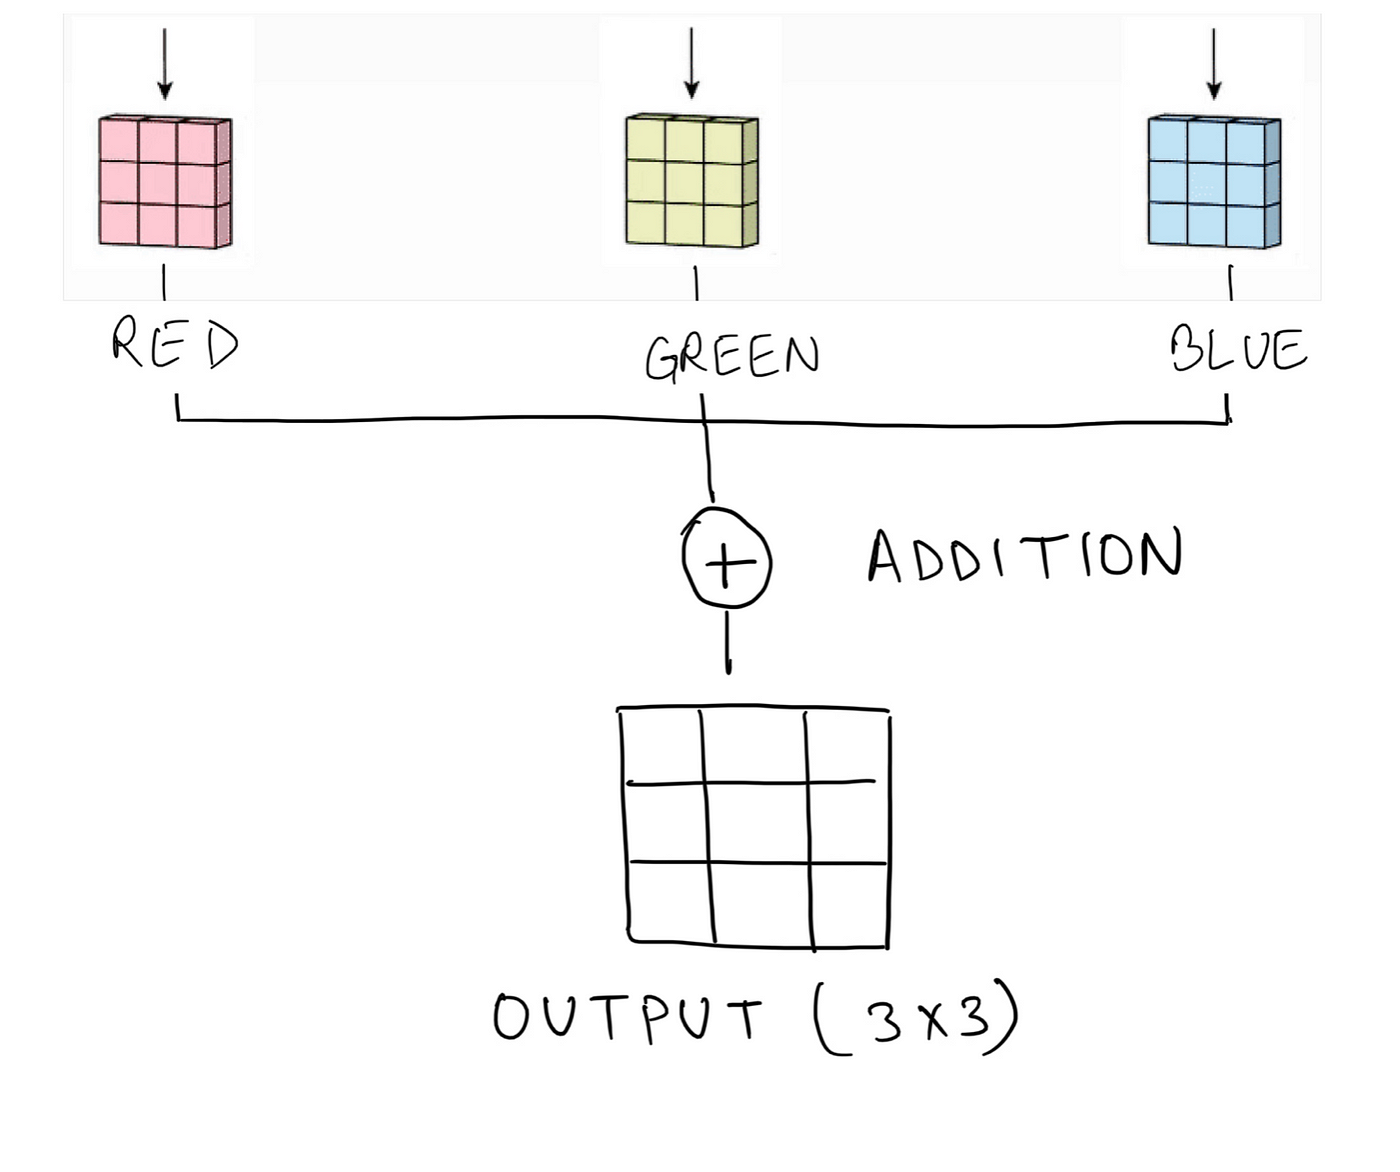 RED
GREEN
BLUE
+ ADDITION
OUTPUT (3x3)